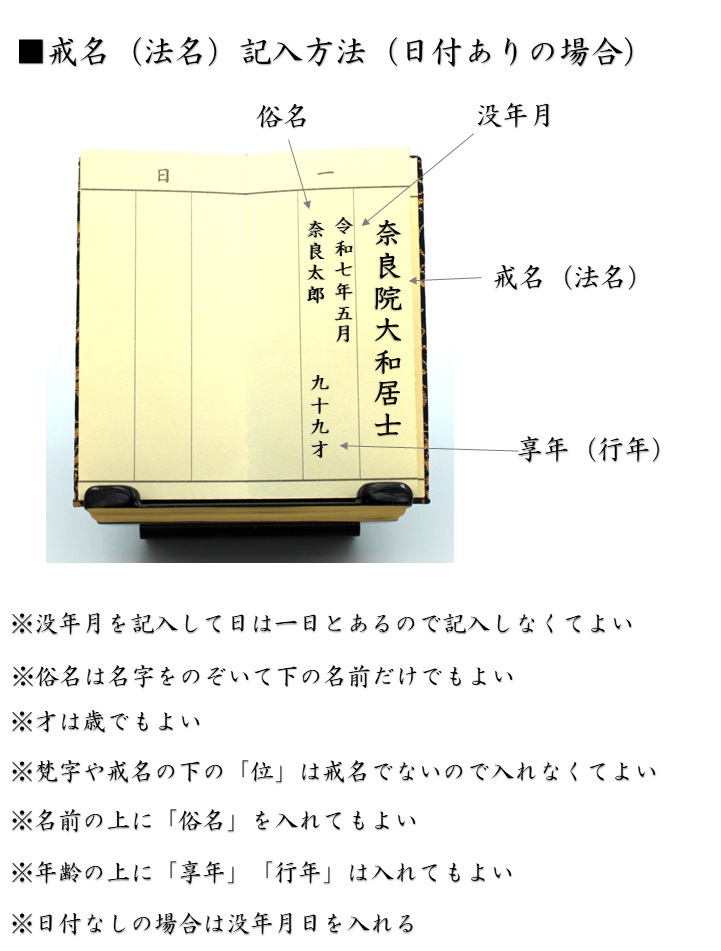 ■戒名（法名）記入方法（日付ありの場合）
俗名
没年月
一日
奈良院大和居士
令和七年五月
奈良太郎 九十九才
戒名（法名）
享年（行年）
※没年月を記入して日は一日とあるので記入しなくてよい
※俗名は名字をのぞいて下の名前だけでもよい
※才は歳でもよい
※梵字や戒名の下の「位」は戒名でないので入れなくてよい
※名前の上に「俗名」を入れてもよい
※年齢の上に「享年」「行年」は入れてもよい
※日付なしの場合は没年月日を入れる